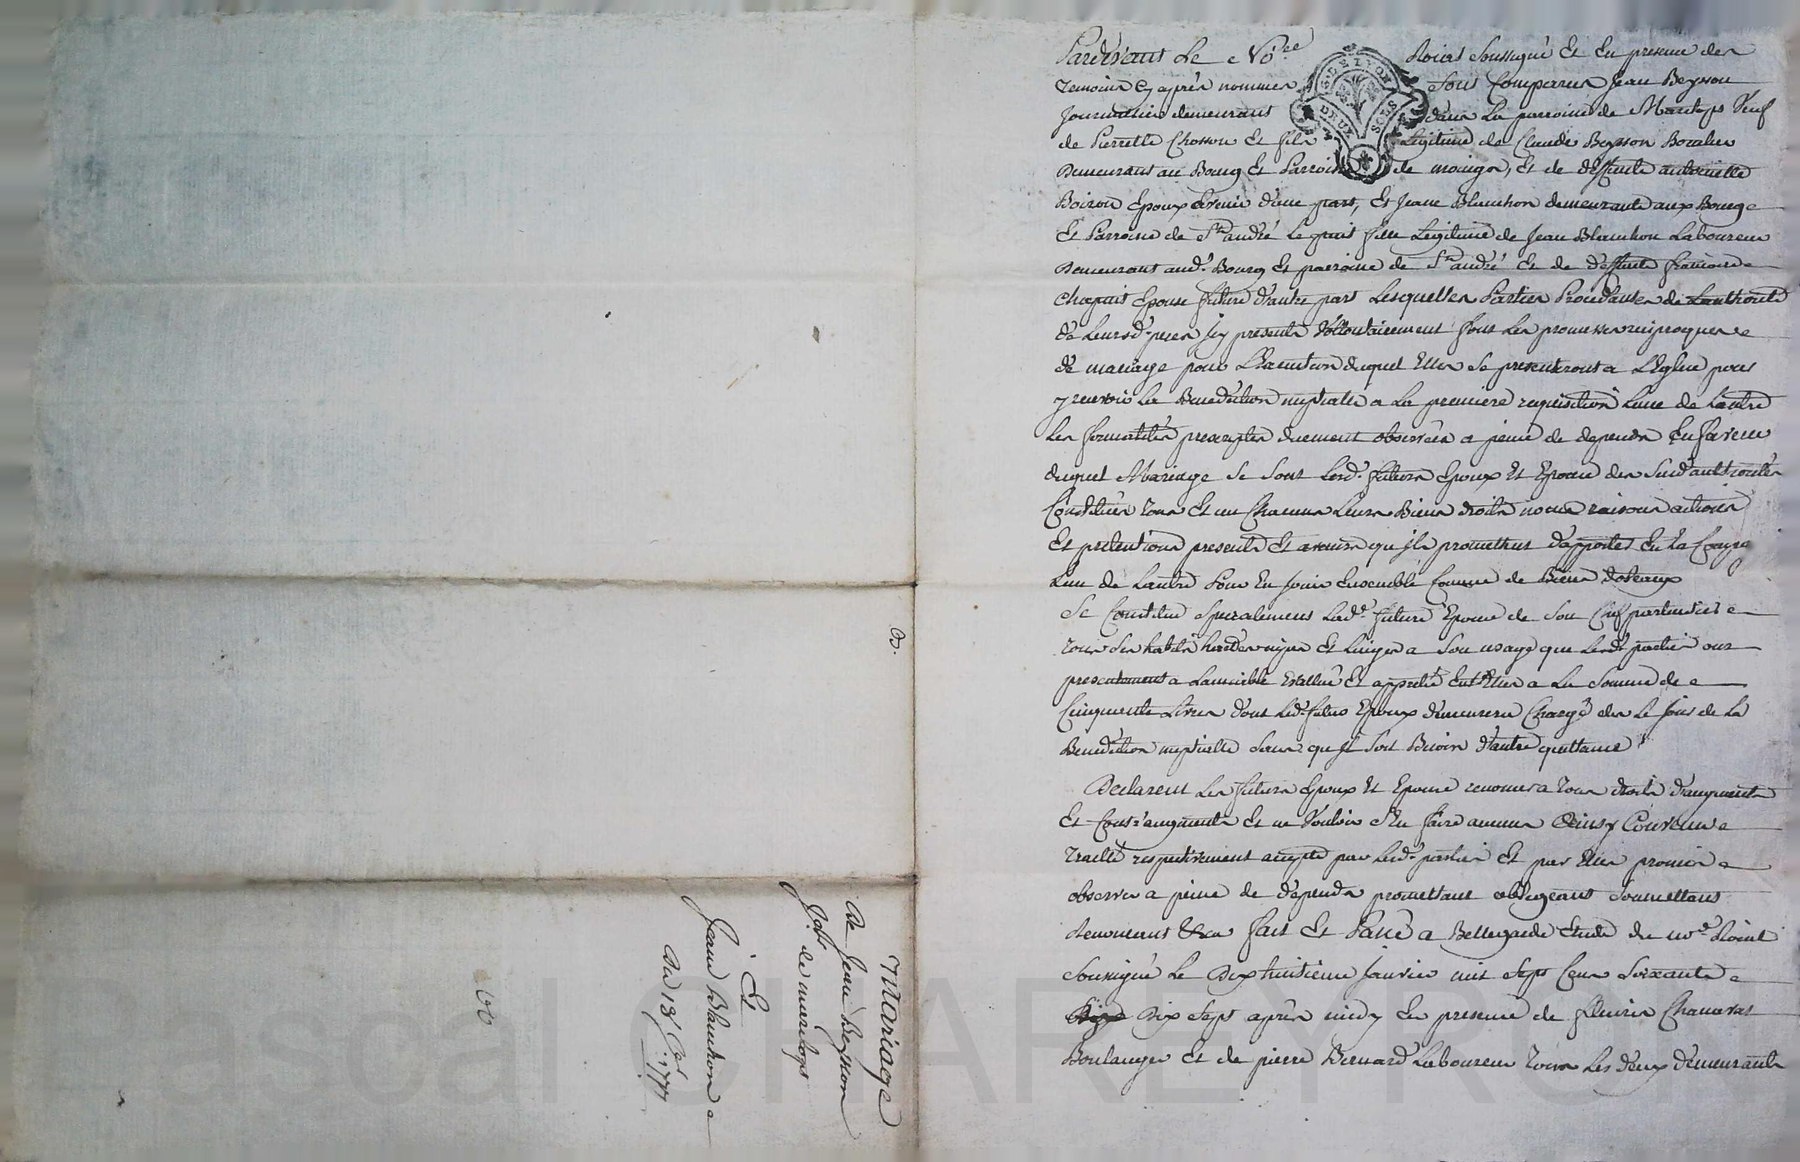 Pardevant Le No.re Roial Soussigné Et En presence des
temoins cy après nommes Sont Comparus Jean Beysson
Journallier demeurant dans La parroisse de Marclops Veuf
de Pierrette Chosson Et fils Legitime de Claude Beysson
Demeurant au Bourg Et Parroisse de moingt, Et de deffunte antoinette
Boiron Epoux avenir d'une part, Et Jeane Blanchon demeurante aux Bourg
Et Parroisse de St andré Le puit fille Legitime de Jean Blanchon Laboureur
Demeurant aud. Bourg Et parroisse de St andré Et de deffunte françoise
chapuis Epouse future d'autre part Lesquelles Parties Procedantes de Lauthorité
de Leursd. peres jcy presents Vollontairement font Les promesses reciproques
de mariage pour L'Execution duquel Elles Se presenteront a L'Eglise pour
y recevoir La Benediction nuptialle a La premiere requisition Lune de Lautre
Les formalités prescriptes duement observées a peine de depends En faveur
duquel Mariage Se Sont Lesd. futurs Epoux Et Epouse des Susd. authorités
Constitués tous Et un Chacuns Leurs Biens droits noms raisons actions
Et pretentions presents Et avenirs qu'jls promettent d'apporter En La Compe
Lun de Lautre Pour En Jouir Ensemble Comme de Biens dotaux
Se Constitue Specialement Lade. future Epouse de Son Chef particulier
tous Ses habits hardes nipes Et Linges a Son usage que Lesd. parties ont
presentement a Lamiable Evallué Et apprecié Entr'Elles a La Somme de
Cinquante Livres dont Led. futur Epoux demeurera Chargé des Le Jour de La
Benediction nuptialle Sans qu'jl Soit Besoin d'autre quittance
Declarent Les futurs Epoux Et Epouse renoncer a tous droits d'augments
Et Contr'augments Et ne Vouloir S'En faire aucuns Ainsy Convenu
traitté respectivement accepté par Lesd. parties Et par Elles promis
observer a peine de depends promettant obligeant Soumettant
Renonceant &ca fait Et Passé a Bellegarde Etude du no.re Roial
Soussigné Le Dix huitieme Janvier mil Sept Cent Soixante
Dix Sept après midy En presence de fleurie Chaunras
Boulanger Et de pierre Bernard Laboureur tous Les deux demeurants
G. DE LYON
DEUX SOLS
Mariage
De Jean Beysson
Jal. de marclops
Et
Jeane Blanchon
Du 18 1777
Pascal CHAREYRON